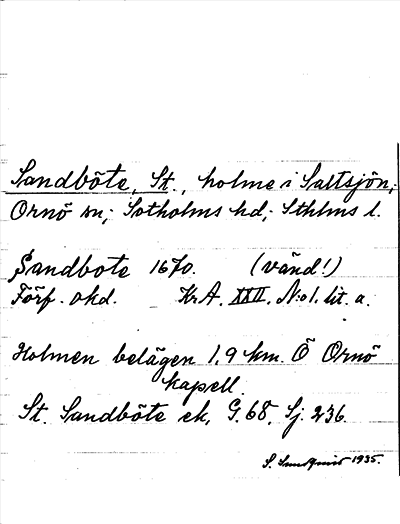 Sandböte, St., holme i Saltsjön;
Ornö sn; Sotholms hd; Sthlms l.
Sandbote 1670. (vänd!)
Förf. okd. Kr.A. XXII. N:o 1. lit. a.
Holmen belägen 1,9 km. Ö Ornö
kapell.
St. Sandböte ek, G. 68, Sj. 236.
S. 1935.